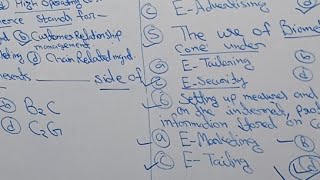 High Operating Co
ence stands for—
(b) Customer Relationship
management
keting (d) Chain Related mgnt.
esents ______ side of
(b) B2C
(d) C2G
E-Advertising
(5) The use of Biome
come under
(a) E-Tailoning
(c) E-Security
(6) Setting up measures and
on the internet,
information stored on
(a) E-Marketing
(b)
(c) E-Tailing
(d)